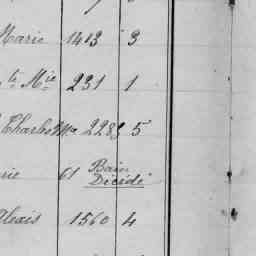 Marie 1413 3
te Mie 231 1
Charles Ma 2283 5
rie 61 Bain
Décidé
Alexis 1560 4